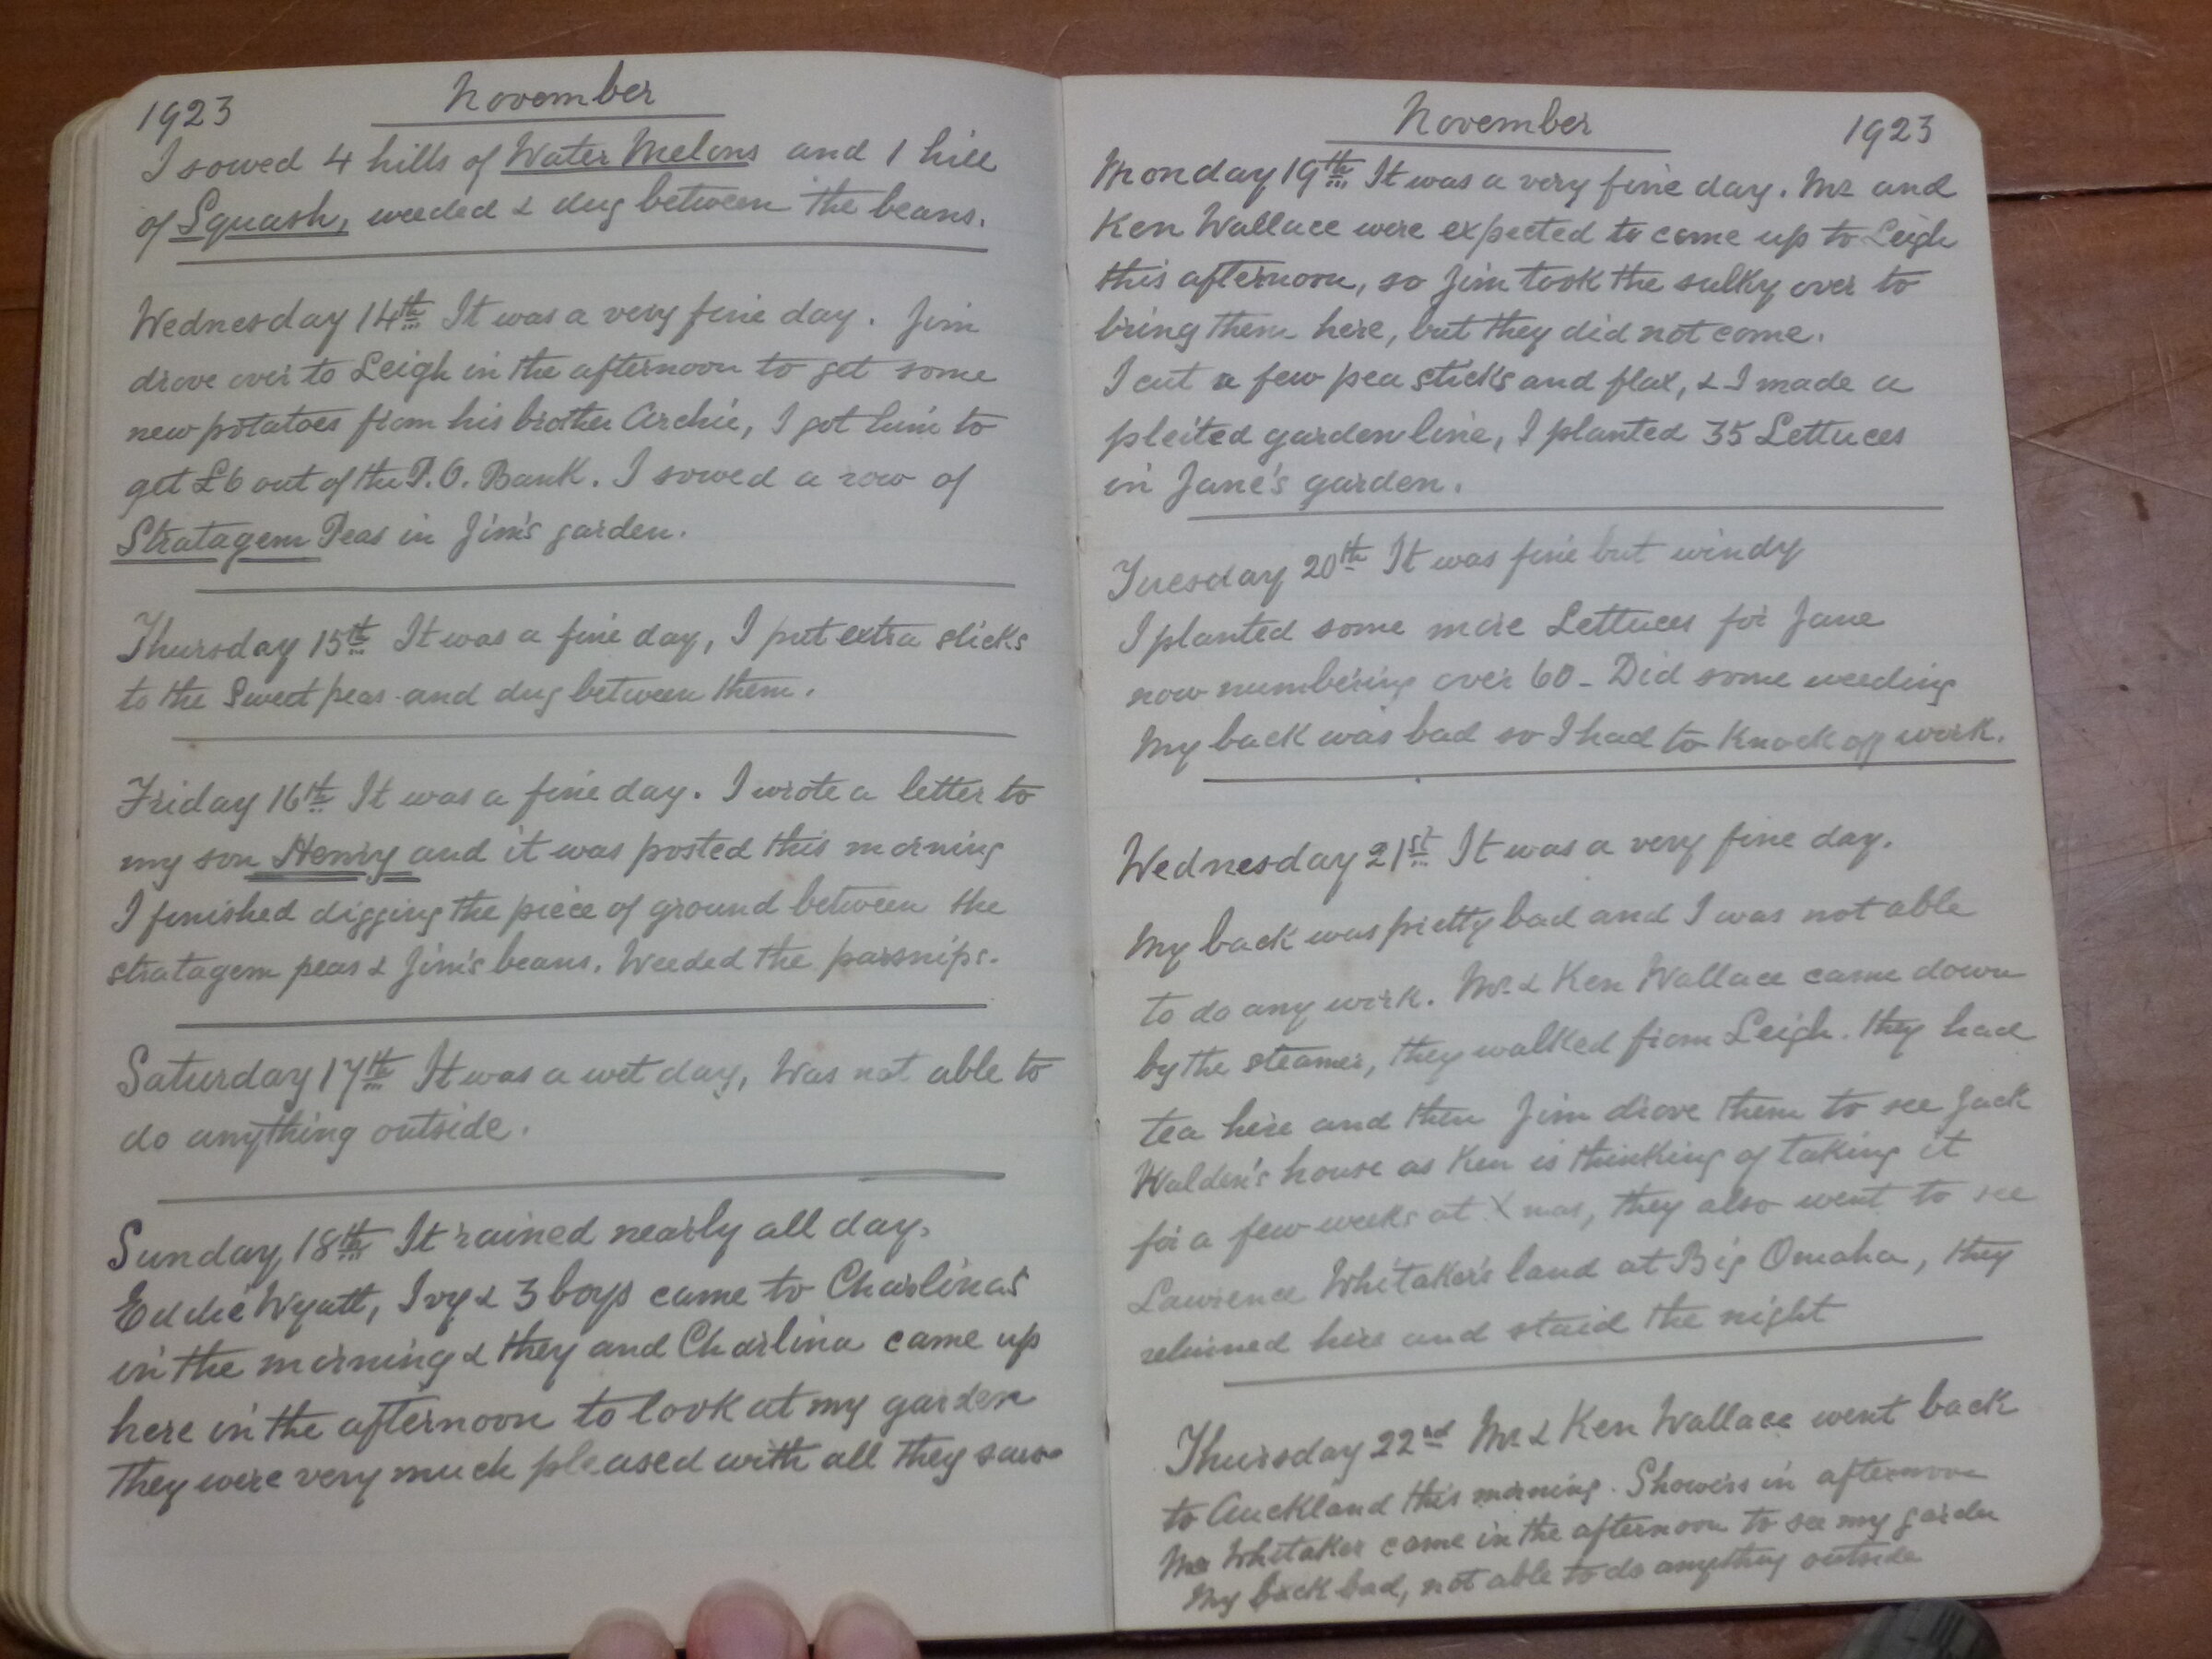 1923 November
I sowed 4 hills of Water Melons and 1 hill
of Squash, weeded & dug between the beans.
Wednesday 14th It was a very fine day. Jim
drove over to Leigh in the afternoon to get some
new potatoes from his brother Archie, I got him to
get £6 out of the P.O. Bank. I sowed a row of
Stratagem Peas in Jim's garden.
Thursday 15th It was a fine day, I put extra sticks
to the Sweet peas and dug between them.
Friday 16th It was a fine day. I wrote a letter to
my son Henry and it was posted this morning
I finished digging the piece of ground between the
stratagem peas & Jim's beans. Weeded the parsnips.
Saturday 17th It was a wet day, Was not able to
do anything outside.
Sunday, 18th It rained nearly all day.
Eddie Wyatt, Ivy & 3 boys came to Charlinas
in the morning & they and Charlina came up
here in the afternoon to look at my garden
They were very much pleased with all they saw
November 1923
Monday 19th It was a very fine day. Mr and
Ken Wallace were expected to come up to Leigh
this afternoon, so Jim took the sulky over to
bring them here, but they did not come.
I cut a few pea sticks and flax, & I made a
pleited garden line, I planted 35 Lettuces
in Jane's garden.
Tuesday 20th It was fine but windy
I planted some more Lettuces for Jane
now numbering over 60 - Did some weeding
My back was bad so I had to Knock off work.
Wednesday 21st It was a very fine day.
My back was pretty bad and I was not able
to do any work. Mr. & Ken Wallace came down
by the steamer, they walked from Leigh. they had
tea here and then Jim drove them to see Jack
Walden's house as Ken is thinking of taking it
for a few weeks at Xmas, they also went to see
Lawrence Whitaker's land at Big Omaha, they
returned here and staid the night
Thursday 22nd Mr & Ken Wallace went back
to Auckland this morning. Showers in afternoon
Whitaker came in the afternoon to see my garden
My back bad, not able to do anything outside